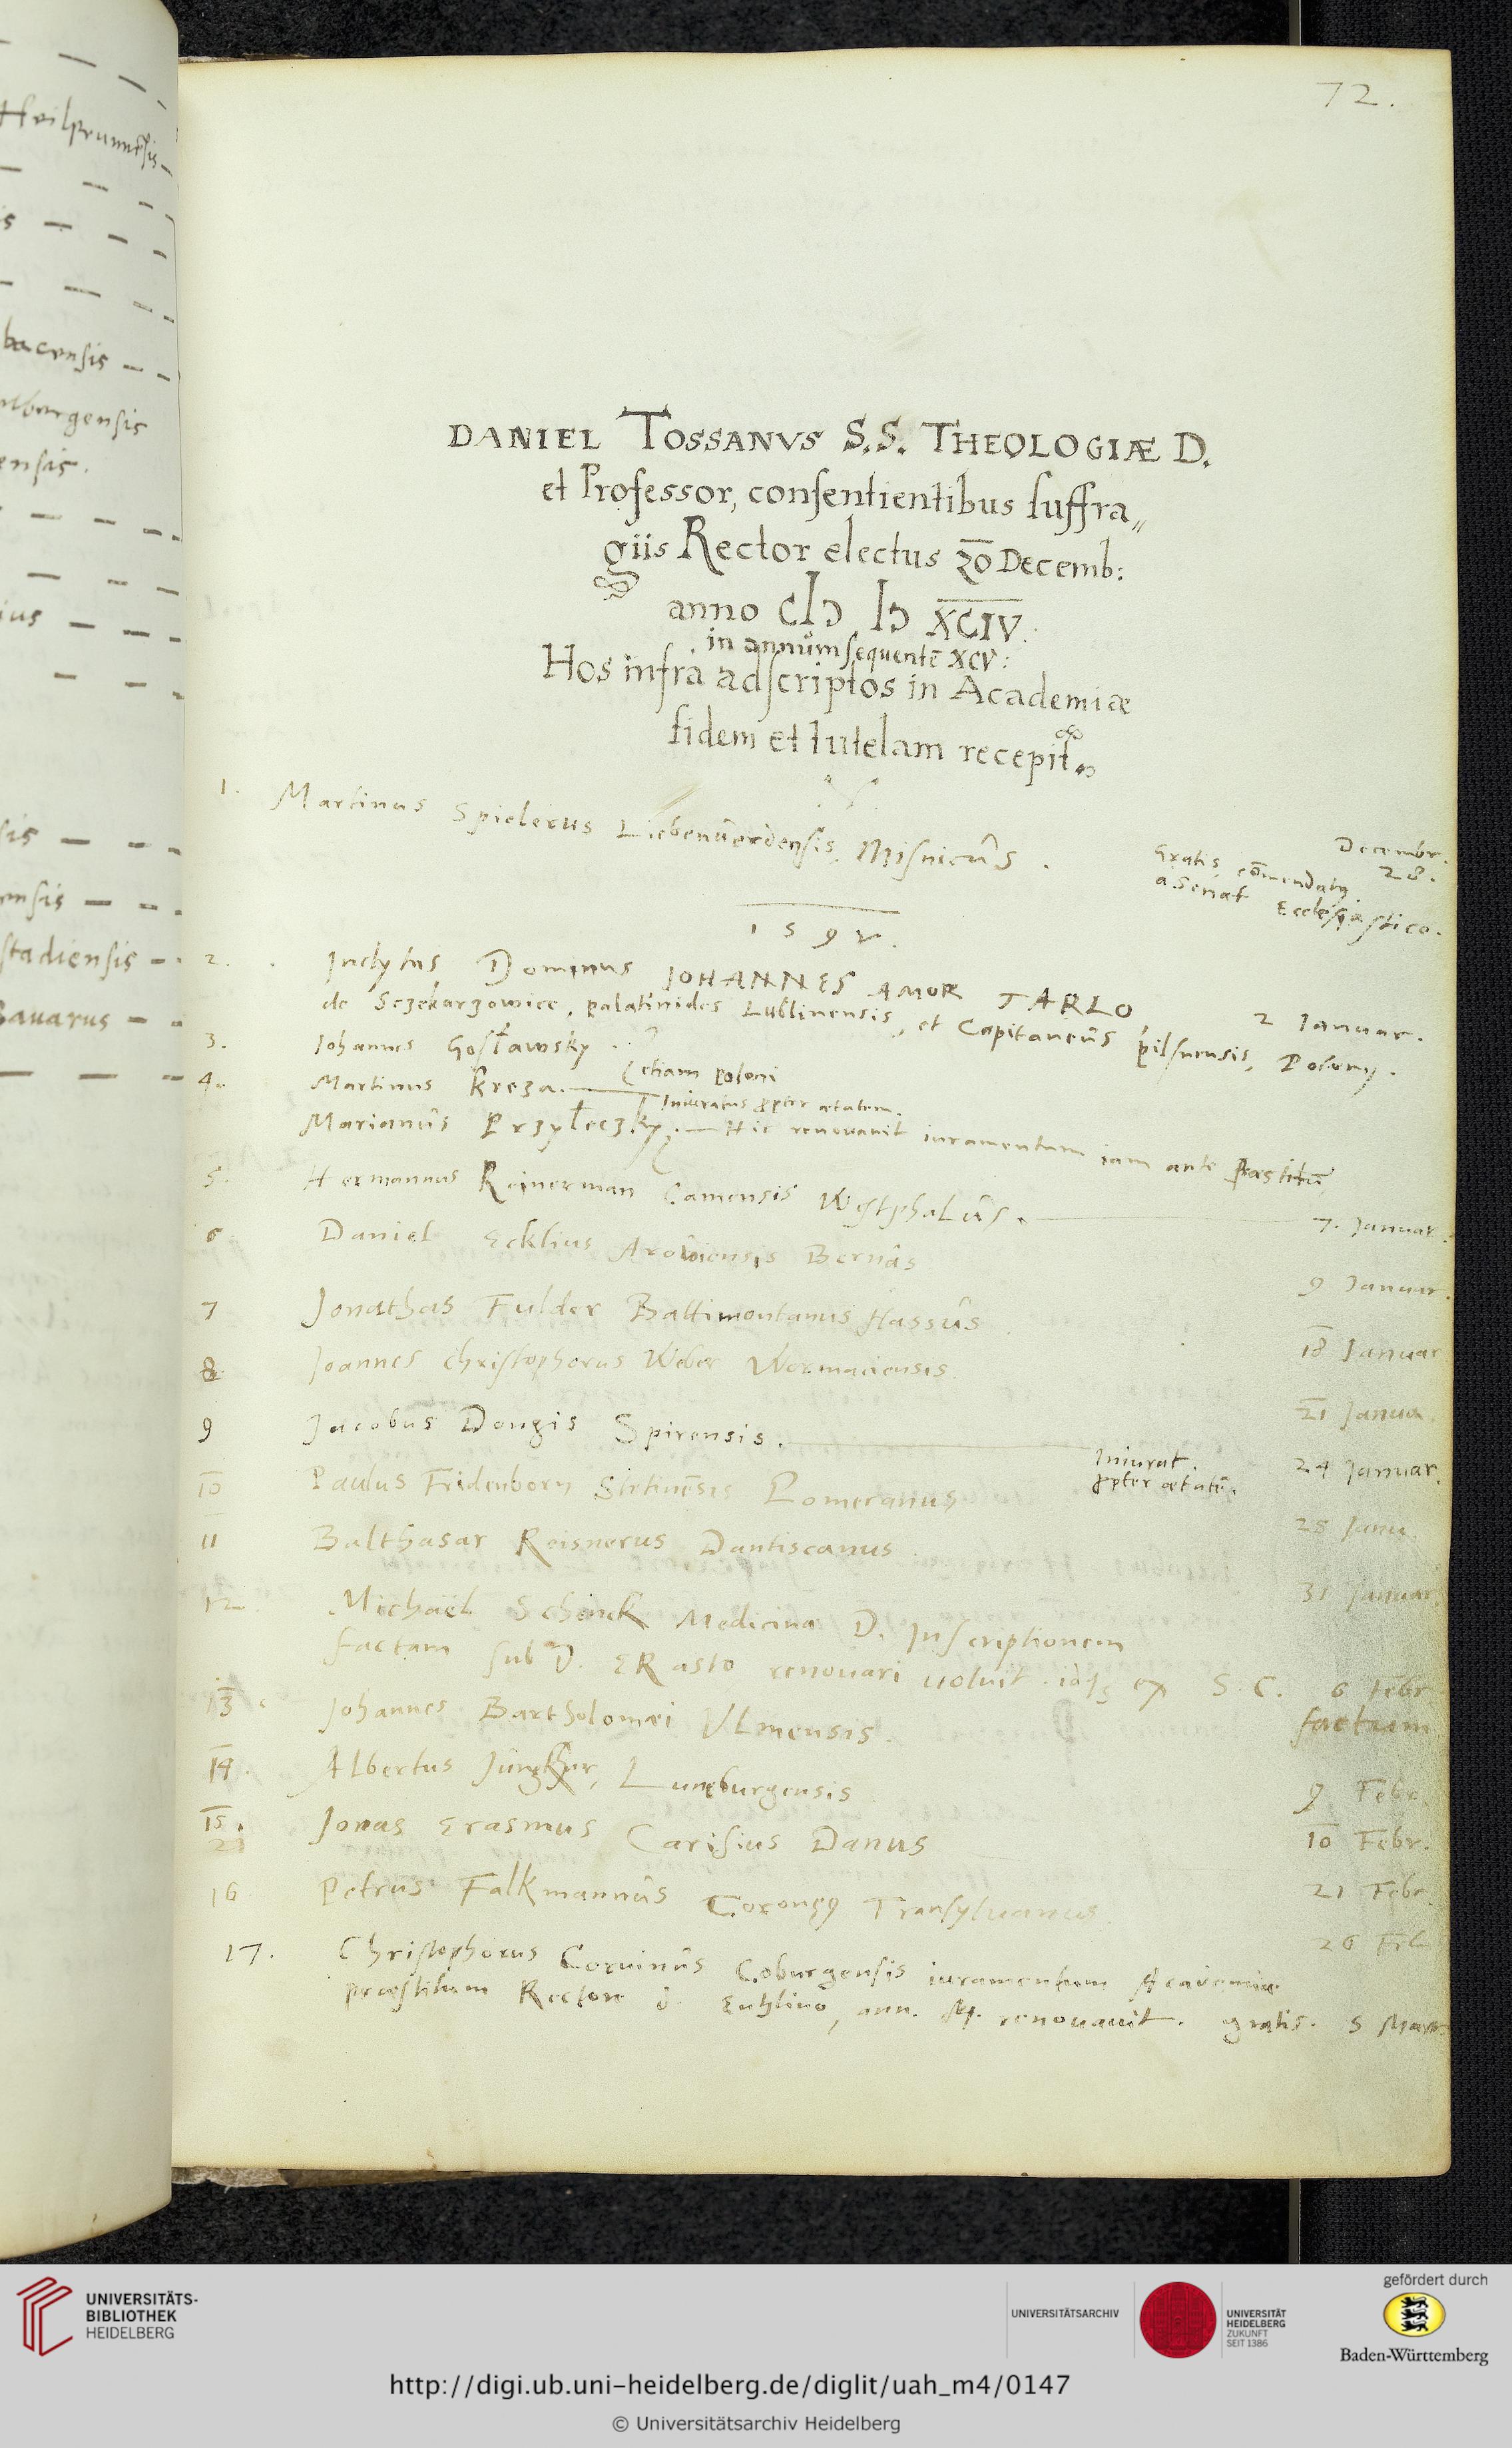 Heilprunnensis
bacensis
mbergensis
ensis.
stadiensis
Bavarus
72.
DANIEL TOSSANVS S.S. THEOLOGIÆ D.
et Professor, consentientibus suffra„
giis Rector electus 20 Decemb:
anno CIƆ IƆ XCIV.
in annum sequentē XCV:
Hos infra adscriptos in Academiæ
fidem et tutelam recepit
1. Martinus Spielerus Liebenuerdensis, Misnicus.
Gratis, com̄endatus a Senat Ecclesiastico.
Decembr. 28.
1595.
2. Inclytus Dominus JOHANNES AMOR TARLO
de Sczekarzowice, palatinides Lublinensis, et Capitaneus pilsnensis, 2 Ianuar.
3. Iohannes Gosławsky
(etiam poloni
4. Martinus Kreza. Iniuratus propter ætatem.
Marianus Przyłeczky. Hic renouauit iuramentum iam ante præstitū
5. Hermannus Reinerman Camensis Westphalus. 7. Januar.
6 Daniel Ecklius Arowiensis Bernas 9 Januar.
7 Jonathas Fulder Battimontanus Hassus 18 Januar
8 Joannes Christophorus Weber Wormaciensis. 21 Janua.
9 Jacobus Dongis Spirensis. Iniurat. propter ætatē. 24 Januar.
10 Paulus Fridenborn Stetinensis Pomeranus 25 Janu.
11 Balthasar Reisnerus Dantiscanus 31 Januar
12 Michaël Schenck Medicinæ D. Inscriptionem
factam sub D. ERasto renouari uoluit. idq; ex S. C. 6 Febr
factum
13 Johannes Bartholomæi VLmensis. 9 Febr.
14. Albertus Lunæburgensis 10 Febr.
15. Jonas Erasmus Carisius Danus 21 Febr.
16 Petrus Falkmannus Coronens Transyluanus. 26 Feb
17. Christophorus Coruinus Coburgensis iuramentum Academiæ
præstitum Rectore d. ann. renouauit. gratis. 5 Mart
UNIVERSITÄTS-
BIBLIOTHEK
HEIDELBERG
UNIVERSITÄTSARCHIV
UNIVERSITÄT
HEIDELBERG
ZUKUNFT
SEIT 1386
gefördert durch
Baden-Württemberg
http://digi.ub.uni-heidelberg.de/diglit/uah_m4/0147
© Universitätsarchiv Heidelberg